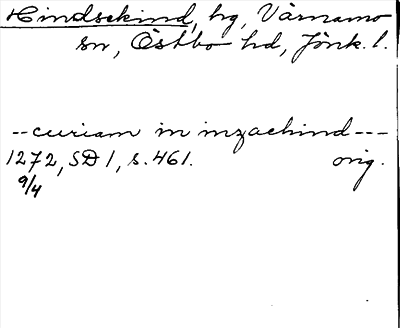 Hindsekind, hg, Värnamo
sn, Östbo hd, Jönk. l.
-- curiam in inzachind ---
1272, SD 1, s. 461. orig.
9/4